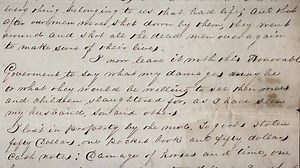 every thing belonging to us that had left; and that
after our men were shot down by them, they went
around and shot all the dead men over again
to make sure of their lives.
I now leave it with this Honorable
Government to say what my damages may be
or what they would be willing to see their wives
and children slaughtered for, as I have seen
my husband, son and others
I lost in property by the mob. To goods stolen
fifty dollars, one pocket book and fifty dollars
cash notes; damage of horses and time, one